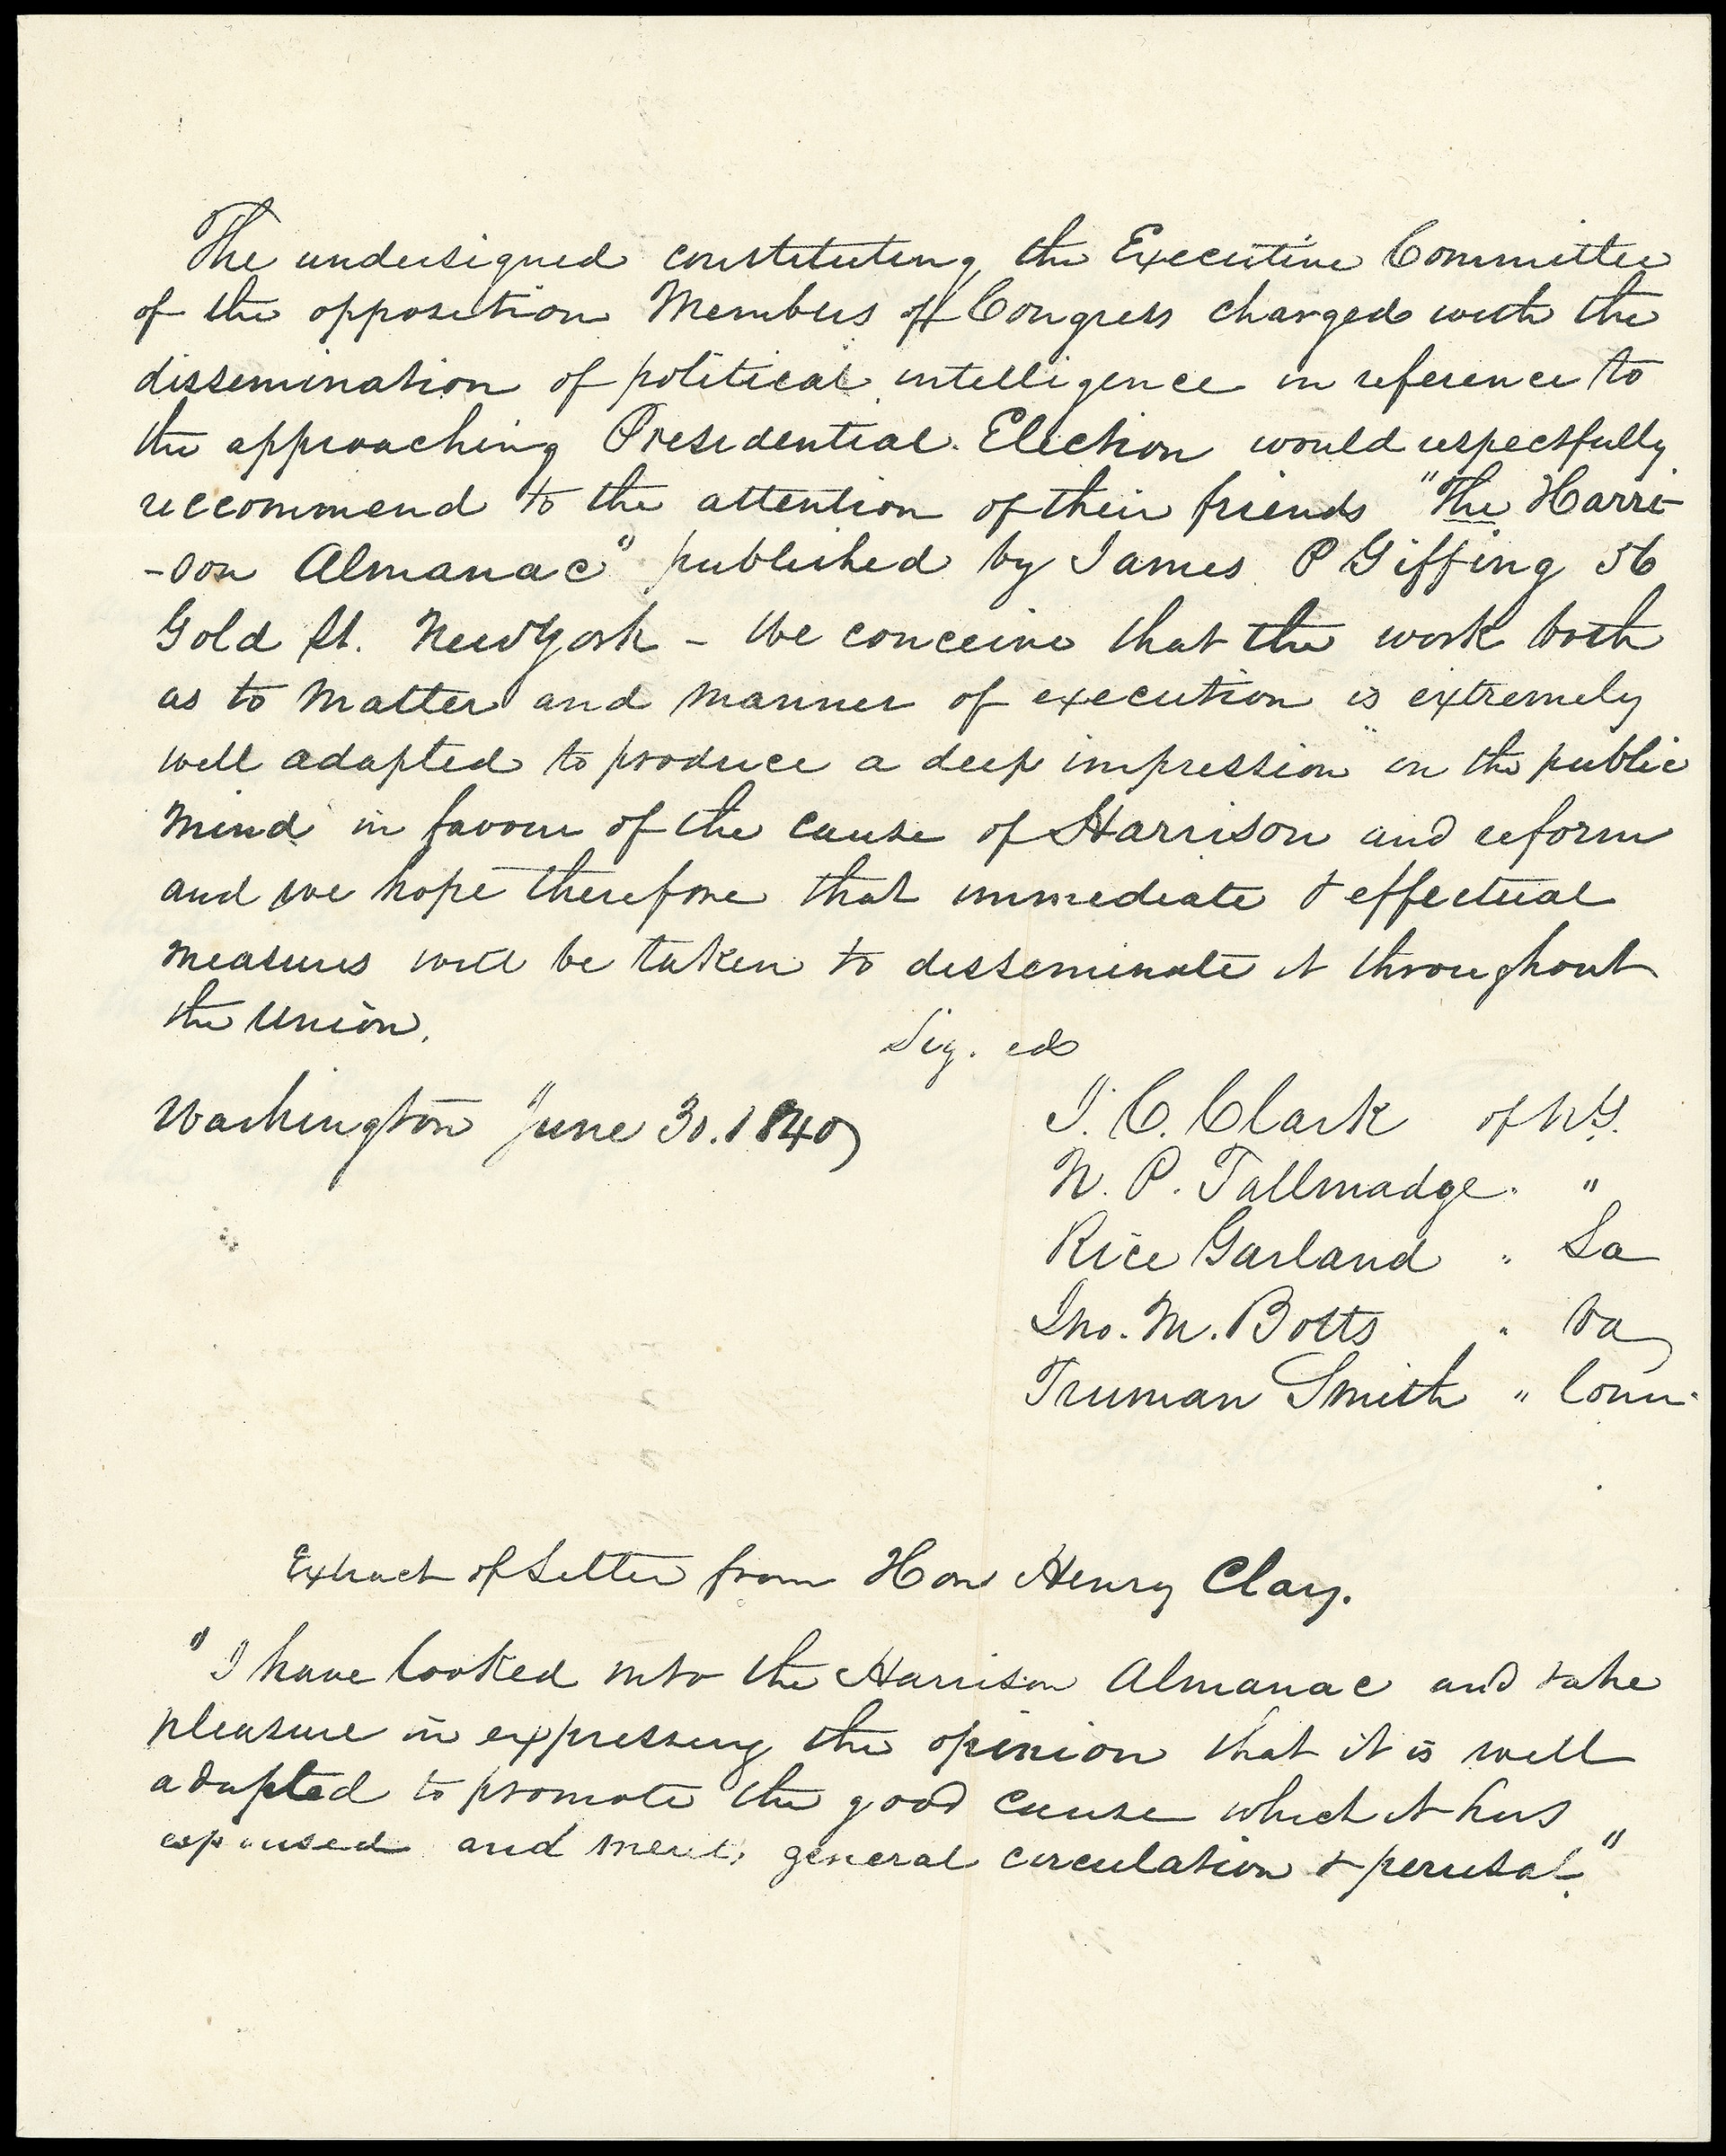 The undersigned constituting the Executive Committee
of the opposition Members of Congress charged with the
dissemination of political intelligence in reference to
the approaching Presidential Election would respectfully
reccommend to the attention of their friends "The Harri-
-son Almanac" published by James P Giffing 56
Gold St. New York - We conceive that the work both
as to Matter and Manner of execution is extremely
well adapted to produce a deep impression on the public
Mind in favour of the cause of Harrison and reform
and we hope therefore that immediate & effectual
measures will be taken to disseminate it throughout
the Union.
Sig. ed
Washington June 30. 1840)
J. C. Clark of N Y.
N. P. Tallmadge. "
Rice Garland " La
Jno. M. Botts " Va
Truman Smith " Conn.
Extract of Letter from Hon Henry Clay.
"I have looked into the Harrison Almanac and take
pleasure in expressing the opinion that it is well
adapted to promote the good cause which it has
espoused and merits general circulation & perusal."